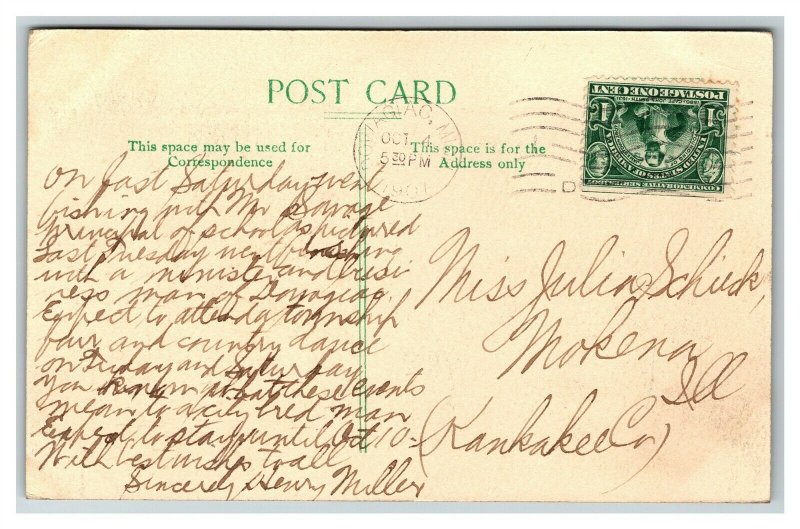 POST CARD
This space may be used for
Correspondence
This space is for the
Address only
DOWAGIAC, MICH.
OCT 4
5 30 PM
POSTAGE ONE CENT
1 1
UNITED STATES OF AMERICA
COMMEMORATIVE SERIES 1907
On last Saturday went
fishing with Mr Savage
principal of school as pictured
Last Tuesday went fishing
with a minister and busi-
ness man of Dowagiac.
Expect to attend a township
fair and country dance
on Friday and Saturday
You know what these events
mean to a city bred man
Expect to stay until Oct 10-
With best wishes to all
Sincerely Henry Miller
Miss Julia Schiek,
Mokena
Ill
(Kankakee Co)